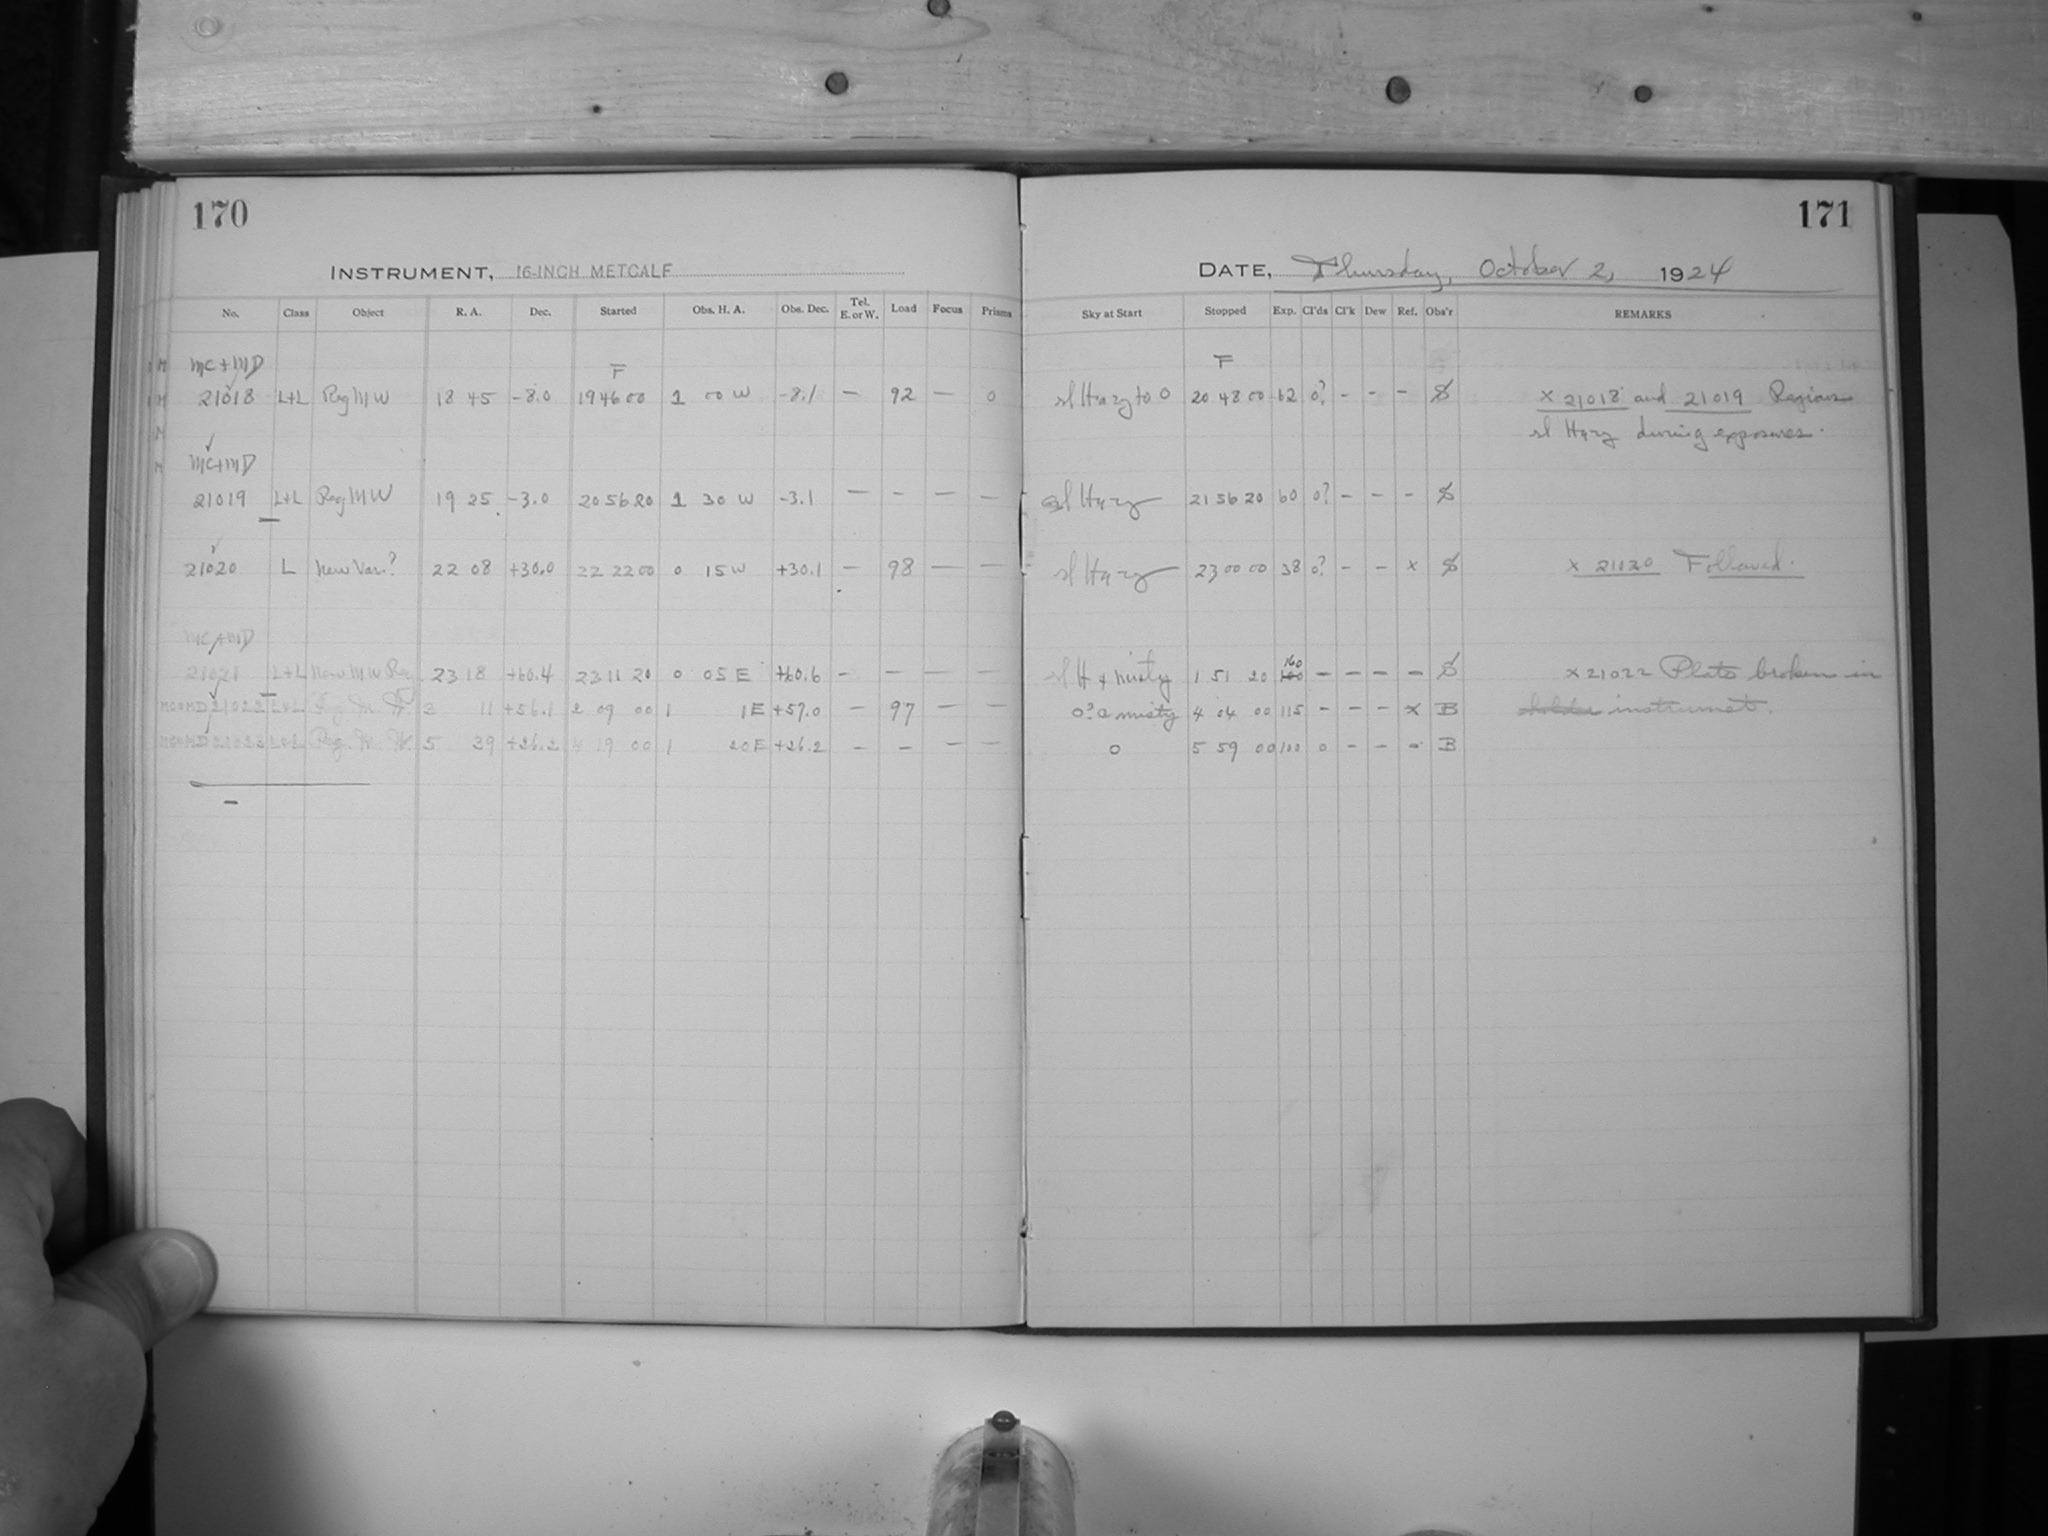 170
INSTRUMENT, 16-INCH METCALF
No. Class Object R. A. Dec. Started Obs. H. A. Obs. Dec. Tel. E. or W. Load Focus Prisms
MC+MD F
21018 L+L Reg MW 18 45 -8.0 19 46 00 1 00 W -8.1 — 92 — 0
MC+MD
21019 L+L Reg MW 19 25 -3.0 20 56 20 1 30 W -3.1 — — — —
21020 L New Var.? 22 08 +30.0 22 22 00 0 15 W +30.1 — 98 — —
MC+MD
21021 L+L New MW Reg 23 18 +60.4 23 11 20 0 05 E +60.6 — — — —
MC+MD 21022 L+L Reg. M. W. 3 11 +56.1 2 09 00 1 1 E +57.0 — 97 — —
MC+MD 21023 L+L Reg. M. W. 5 39 +26.2 4 19 00 1 20 E +26.2 — — — —
171
DATE, Thursday, October 2, 1924
Sky at Start Stopped Exp. Cl'ds Cl'k Dew Ref. Obs'r REMARKS
F
sl Hazy to 0 20 48 00 62 0? - - - S x 21018 and 21019 Regions
sl Hazy during exposures.
sl Hazy 21 56 20 60 0? - - - S
sl Hazy 23 00 00 38 0? - - x S x 21020 Followed.
160
sl H + misty 1 51 20 - - - - S x 21022 Plate broken in
0? a misty 4 04 00 115 - - - x B holder instrument.
0 5 59 00 100 0 - - - B